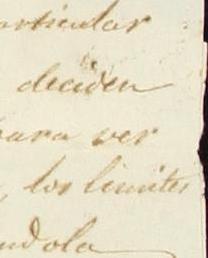 articular
deciden
para ver
, los limites
andola